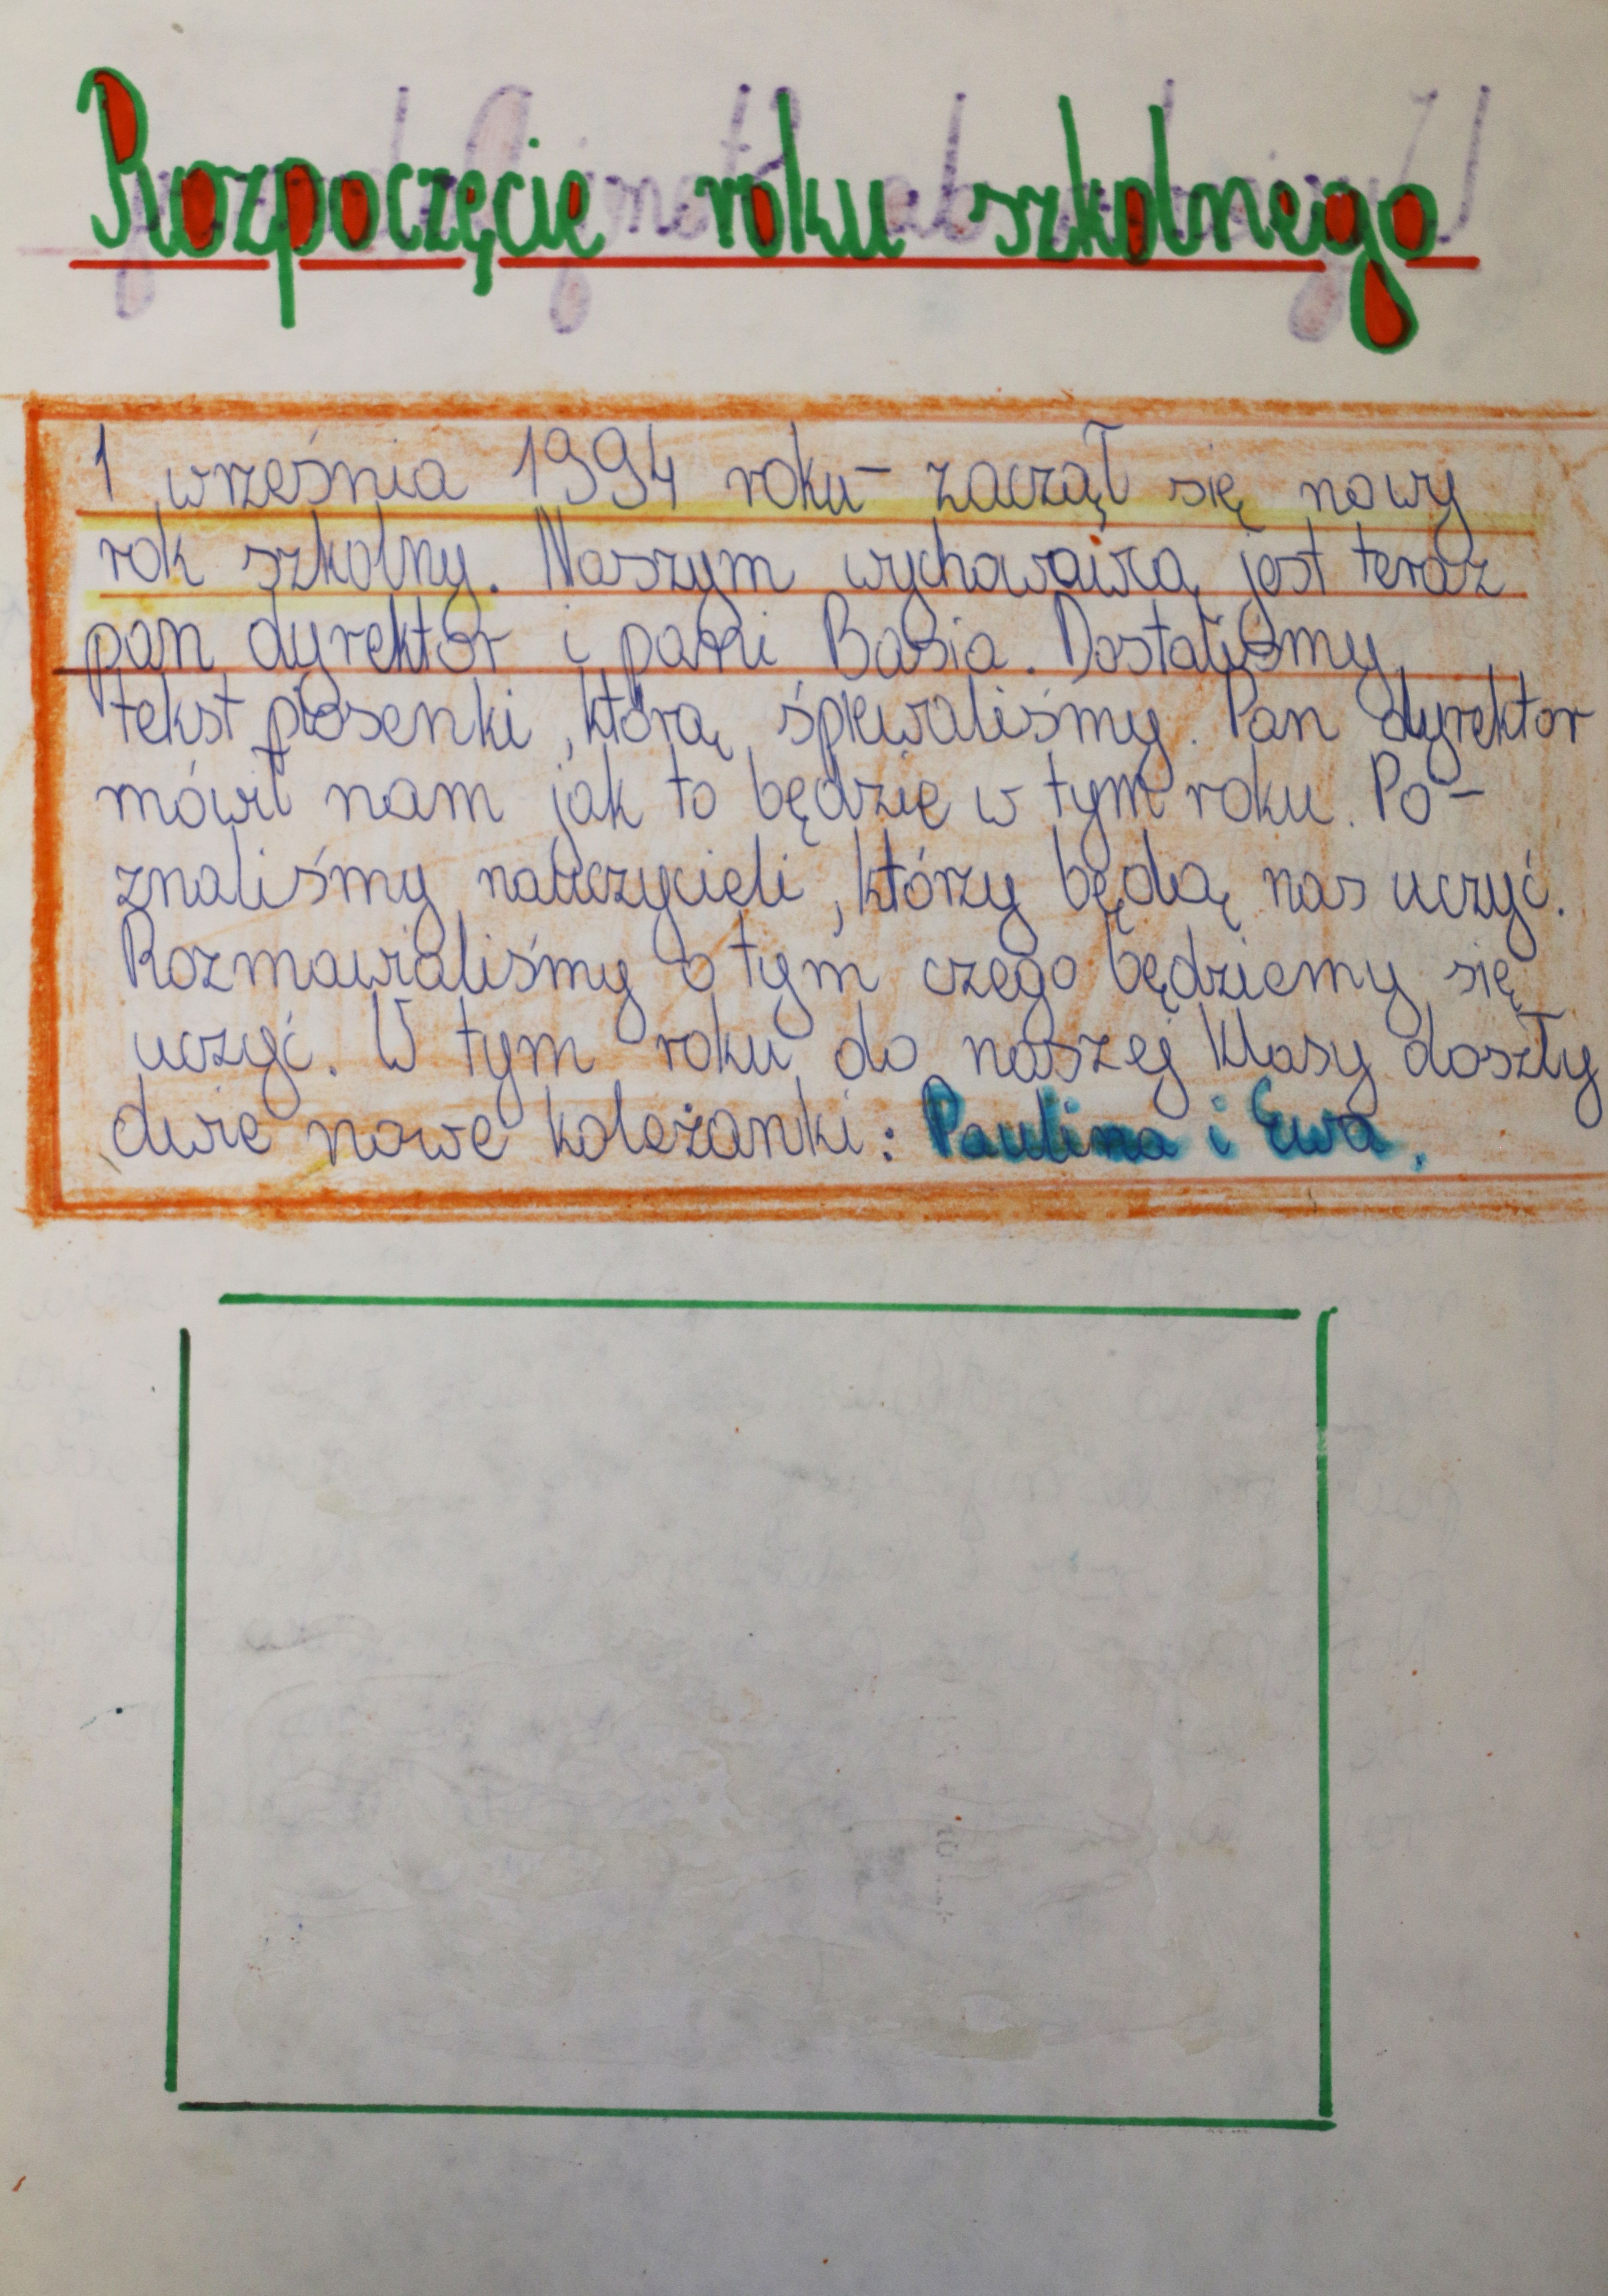 Rozpoczęcie roku szkolnego
1 września 1994 roku - zaczął się nowy
rok szkolny. Naszym wychowawcą jest teraz
pan dyrektor i pani Basia. Dostaliśmy
tekst piosenki, którą śpiewaliśmy. Pan dyrektor
mówił nam jak to będzie w tym roku. Po-
znaliśmy nauczycieli, którzy będą nas uczyć.
Rozmawialiśmy o tym czego będziemy się
uczyć. W tym roku do naszej klasy doszły
dwie nowe koleżanki: Paulina i Ewa.